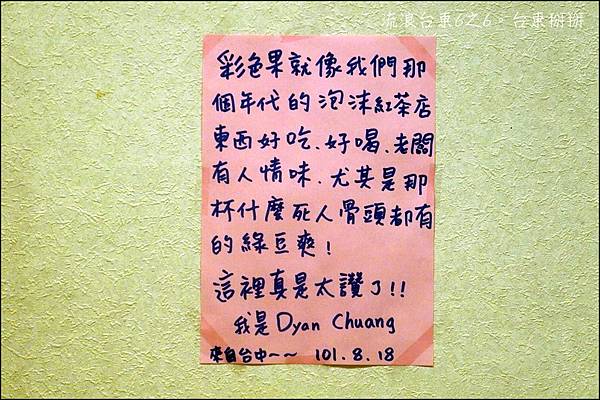 流浪台東626。台東掰掰
彩色果就像我們那
個年代的泡沫紅茶店
東西好吃、好喝、老闆
有人情味、尤其是那
杯什麼死人骨頭都有
的綠豆爽!
這裡真是太讚了!!
我是Dyan Chuang
來自台中~~ 101.8.18